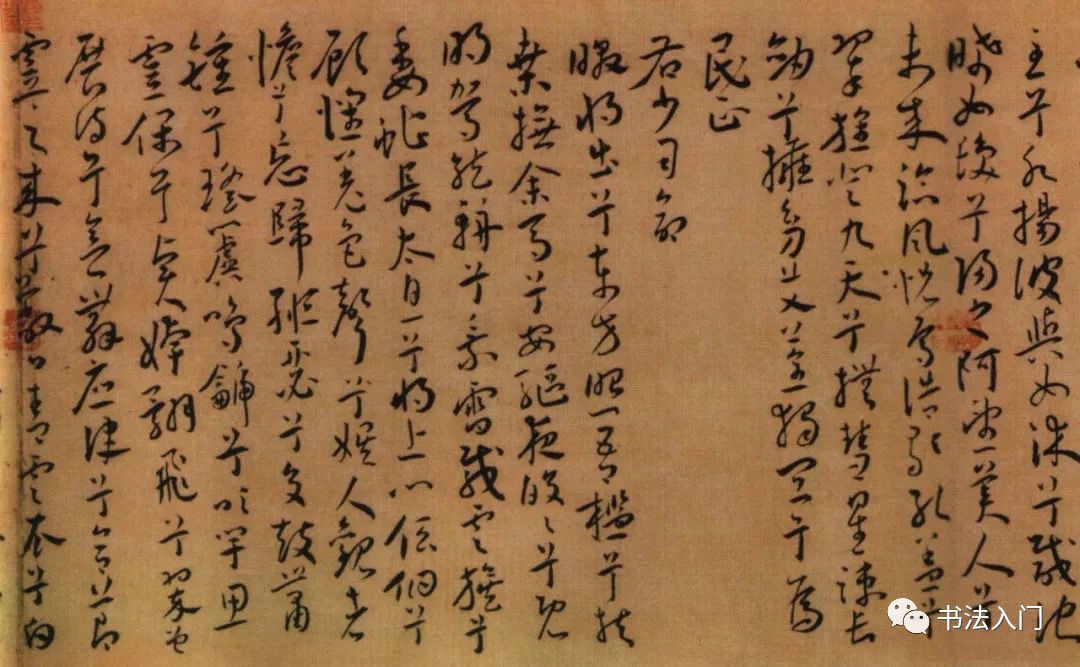 至兮水揚波與女沐兮咸池
晞女髮兮陽之阿望美人兮
未來臨風怳兮浩歌孔蓋兮
翠旌登九天兮撫彗星竦長
劒兮擁幼艾蓀獨宜兮為
民正
右少司命
暾將出兮東方照吾檻兮扶
桒撫余馬兮安驅夜皎皎兮既
明駕龍輈兮乘雷載雲旗兮
委蛇長太息兮將上心低佪兮
顧懷羌色聲兮娛人觀者
憺兮忘歸緪瑟兮交鼓蕭
鍾兮瑤虡鳴䶵兮吹竽思
靈保兮賢姱翾飛兮翠曾
展詩兮會舞應律兮合節
靈之來兮蔽日青雲衣兮白
书法入门